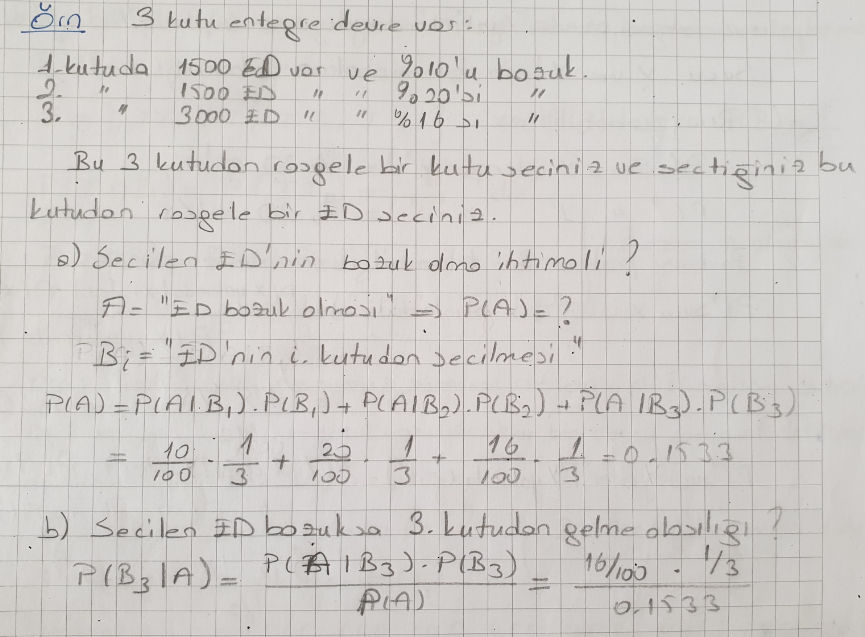 Örn 3 kutu entegre devre var:
1. kutuda 1500 ED var ve %10'u bozuk.
2. " 1500 ED " " %20'si "
3. " 3000 ED " " %16 sı "
Bu 3 kutudan rasgele bir kutu seciniz ve sectiğiniz bu
kutudan rasgele bir ED seciniz.
a) Secilen ED'nin bozuk olma ihtimali?
A = "ED bozuk olması" => P(A) = ?
Bi = "ED'nin i. kutudan secilmesi"
P(A) = P(A|B₁).P(B₁) + P(A|B₂).P(B₂) + P(A|B₃).P(B₃)
= 10/100 . 1/3 + 20/100 . 1/3 + 16/100 . 1/3 = 0.1533
b) Secilen ED bozuksa 3. kutudan gelme olasılığı?
P(B₃|A) = P(A|B₃).P(B₃) / P(A) = 16/100 . 1/3 / 0.1533